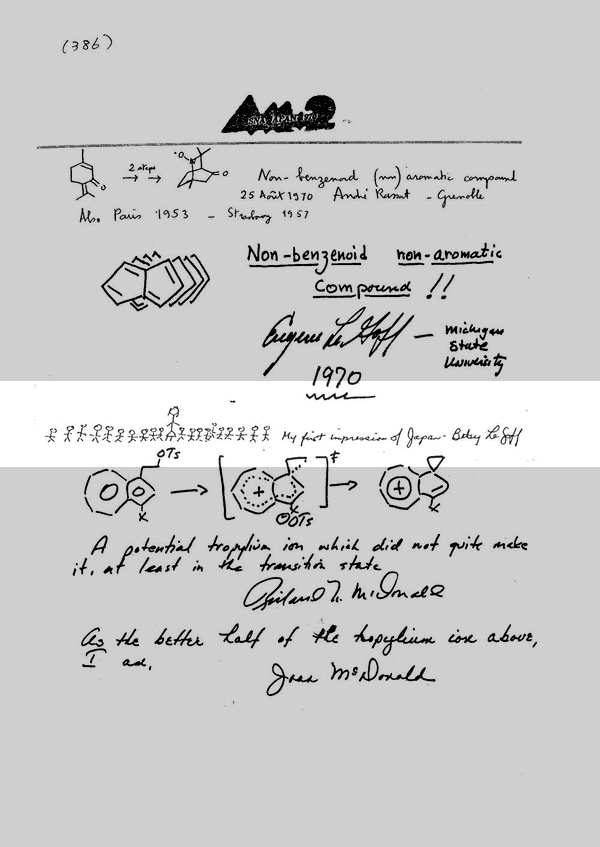 (386)
ISNA JAPAN 1970
2 steps
Non-benzenoid (non) aromatic compound
25 Août 1970 André Rassat - Grenoble
Also Paris 1953 - Strasbourg 1957
Non-benzenoid non-aromatic
Compound !!
Eugene LeGoff - Michigan
State
University
1970
My first impression of Japan - Betsy LeGoff
OTs
+
‡
+
X
X
⊖OTs
X
A potential tropylium ion which did not quite make
it, at least in the transition state
Richard N. McDonald
As the better half of the tropylium ion above,
I am,
Joan McDonald